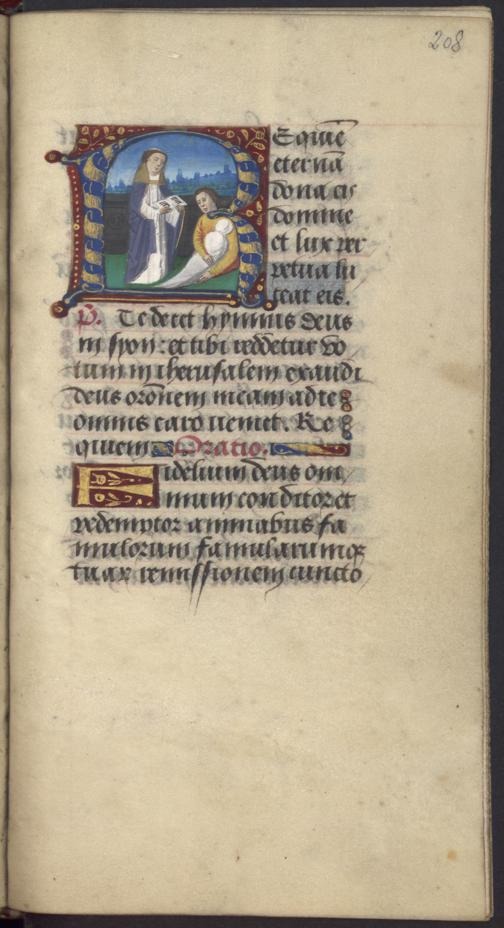 208
REquiē
eternā
dona eis
domine
et lux per
petua lu
ceat eis.
P. Te decet hymnus deus
in syon: et tibi reddetur vo
tum in iherusalem exaudi
deus orōnem meam ad te
omnis caro veniet. Re
quiem Oratio.
Fidelium deus om
nium conditor et
redemptor animabus fa
mulorum famularumqꝫ
tuarꝝ remissionem cuncto